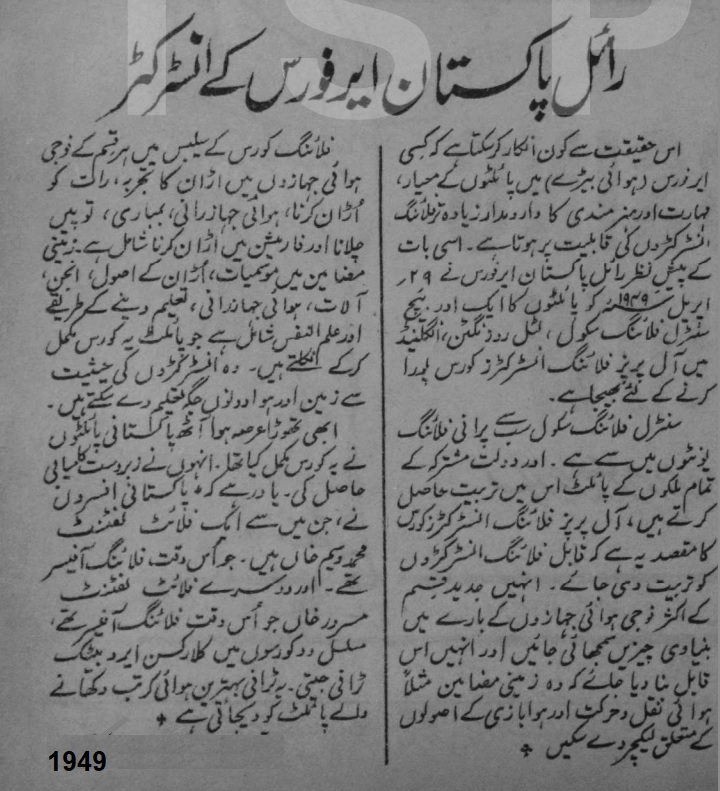 رائل پاکستان ایرفورس کے انسٹرکٹر
اس حقیقت سے کون انکار کر سکتا ہے کہ کسی
ایر فورس (ہوائی بیڑے) میں پائلٹوں کے معیار،
مہارت اور ہنر مندی کا دارومدار زیادہ تر فلائنگ
انسٹرکٹروں کی قابلیت پر ہوتا ہے۔ اسی بات
کے پیش نظر رائل پاکستان ایرفورس نے ۲۹؍
اپریل ۱۹۴۹ء کو پائلٹوں کا ایک اور بیچ
سنٹرل فلائنگ سکول، لٹل روزنگٹن، انگلینڈ
میں آل پرپز فلائنگ انسٹرکٹرز کورس پورا
کرنے کے لئے بھیجا ہے۔
سنٹرل فلائنگ سکول سب سے پرانی فلائنگ
یونٹوں میں سے ہے۔ اور دولت مشترکہ کے
تمام ملکوں کے پائلٹ اس میں تربیت حاصل
کرتے ہیں، آل پرپز فلائنگ انسٹرکٹرز کورس
کا مقصد یہ ہے کہ قابل فلائنگ انسٹرکٹروں
کو تربیت دی جائے۔ انہیں جدید قسم
کے اکثر فوجی ہوائی جہازوں کے بارے میں
بنیادی چیزیں سمجھائی جائیں اور انہیں اس
قابل بنا دیا جائے کہ وہ زمینی مضامین مثلاً
ہوائی نقل و حرکت اور ہوا بازی کے اصولوں
کے متعلق لیکچر دے سکیں
فلائنگ کورس کے سلیبس میں ہر قسم کے فوجی
ہوائی جہازوں میں اڑان کا تجربہ، رات کو
اُڑان کرنا، ہوائی جہازرانی، بمباری، توپیں
چلانا اور فارمیشن میں اُڑان کرنا شامل ہے۔ زمینی
مضامین میں موسمیات، اُڑان کے اصول، انجن،
آلات، ہوائی جہازرانی، تعلیم دینے کے طریقے
اور علم النفس شامل ہے جو پائلٹ یہ کورس مکمل
کرکے نکلتے ہیں۔ وہ انسٹرکٹروں کی حیثیت
سے زمین اور ہوا دونوں جگہ تعلیم دے سکتے ہیں۔
ابھی تھوڑا عرصہ ہوا آٹھ پاکستانی پائلٹوں
نے یہ کورس مکمل کیا تھا۔ انہوں نے زبردست کامیابی
حاصل کی۔ یاد رہے کہ پاکستانی افسروں
نے، جن میں سے ایک فلائٹ لفٹننٹ
محمد وسیم خاں ہیں۔ جو اُس وقت فلائنگ آفیسر
تھے۔ اور دوسرے فلائٹ لفٹننٹ
مسرور خاں جو اُس وقت فلائنگ آفیسر تھے،
مسلسل دو کورسوں میں کلارکسن ایروبیٹک
ٹرافی جیتی۔ یہ ٹرافی بہترین ہوائی کرتب دکھانے
والے پائلٹ کو دیجاتی ہے
1949